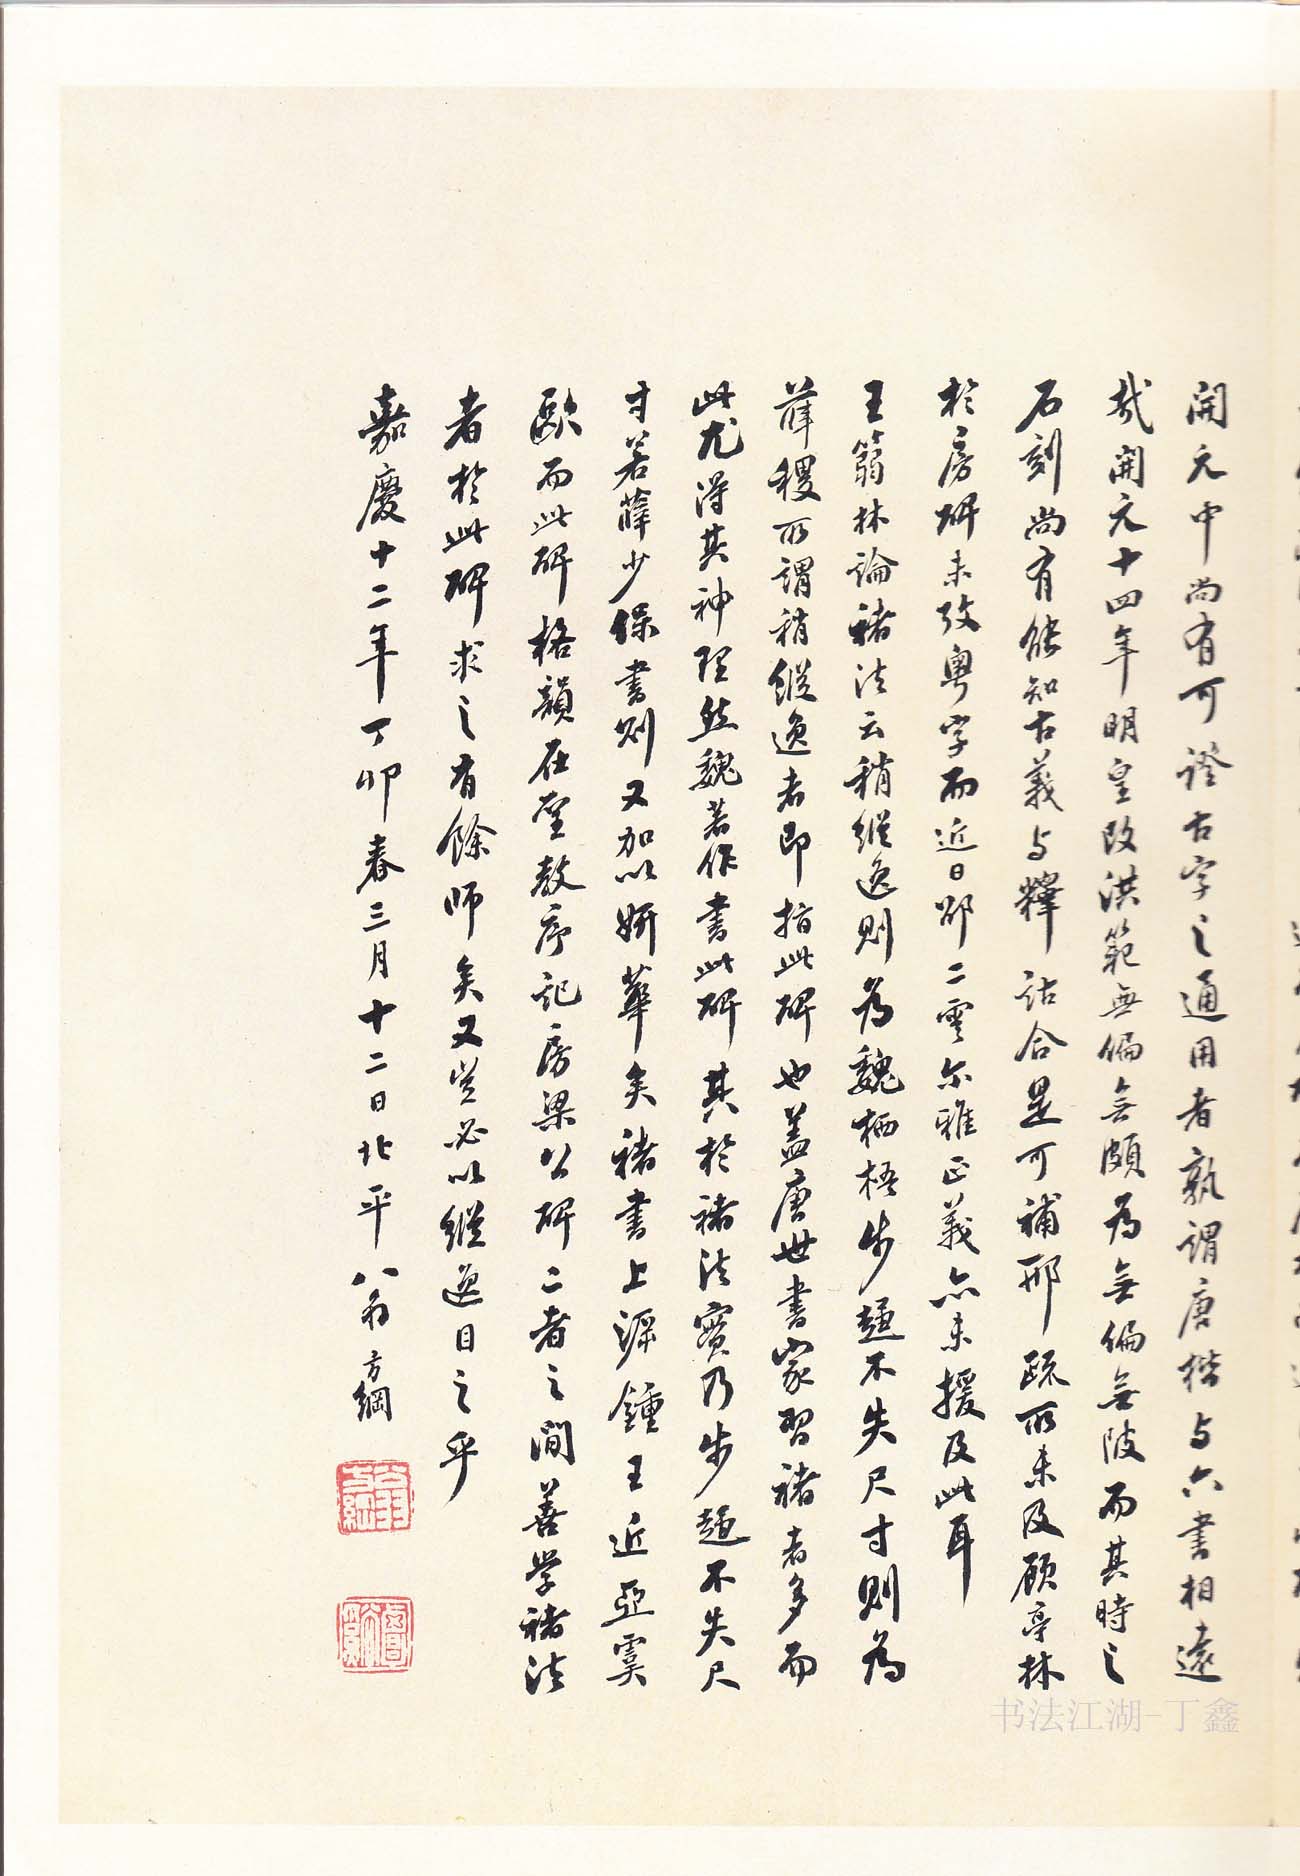 開元中尚有可證古字之通用者孰謂唐楷与六書相遠
哉開元十四年明皇改洪範無偏無頗為無偏無陂而其時之
石刻尚有能知古義与釋詁合是可補邢疏所未及顧亭林
於房碑未攷粵字而近日邵二雲尔雅正義亦未援及此耳
王篛林論褚法云稍縱逸則為魏栖梧步趨不失尺寸則為
薛稷所謂稍縱逸者即指此碑也蓋唐世書家習褚者多而
此尤得其神理然魏著作書此碑其於褚法實乃步趨不失尺
寸若薛少保書則又加以妍華矣褚書上源鍾王近亞虞
歐而此碑格韻在聖教序記房梁公碑二者之間善學褚法
者於此碑求之有餘師矣又豈必以縱逸目之乎
嘉慶十二年丁卯春三月十二日北平翁方綱
翁方綱
覃谿
书法江湖-丁鑫